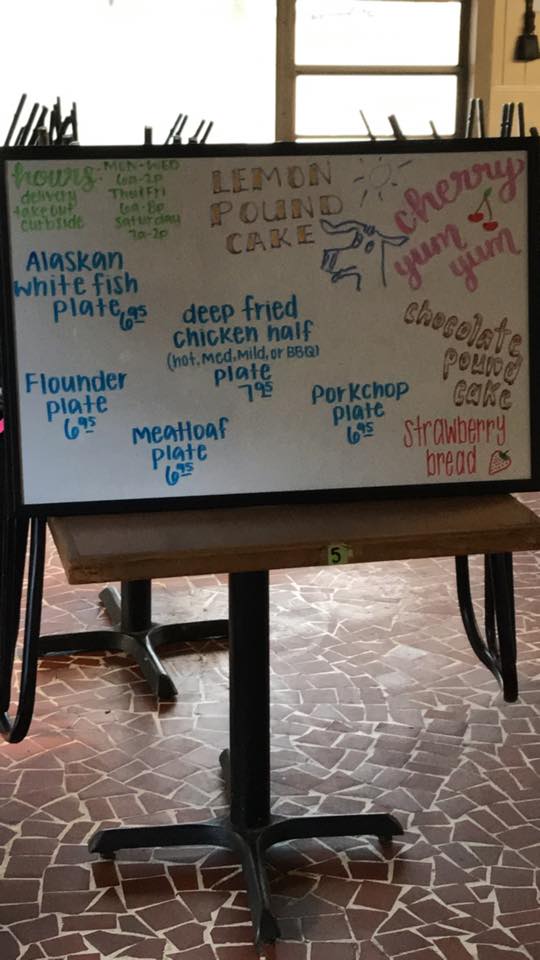 hours
delivery
take out
curbside
MON-WED
6a-2p
Thu+Fri
6a-8p
Saturday
7a-2p
LEMON
POUND
CAKE
cherry
yum
yum
Alaskan
white fish
plate 6.95
deep fried
chicken half
(hot, Med, Mild, or BBQ)
plate
7.95
chocolate
pound
cake
Flounder
plate
6.95
Meatloaf
plate
6.95
Porkchop
plate
6.95
strawberry
bread
5